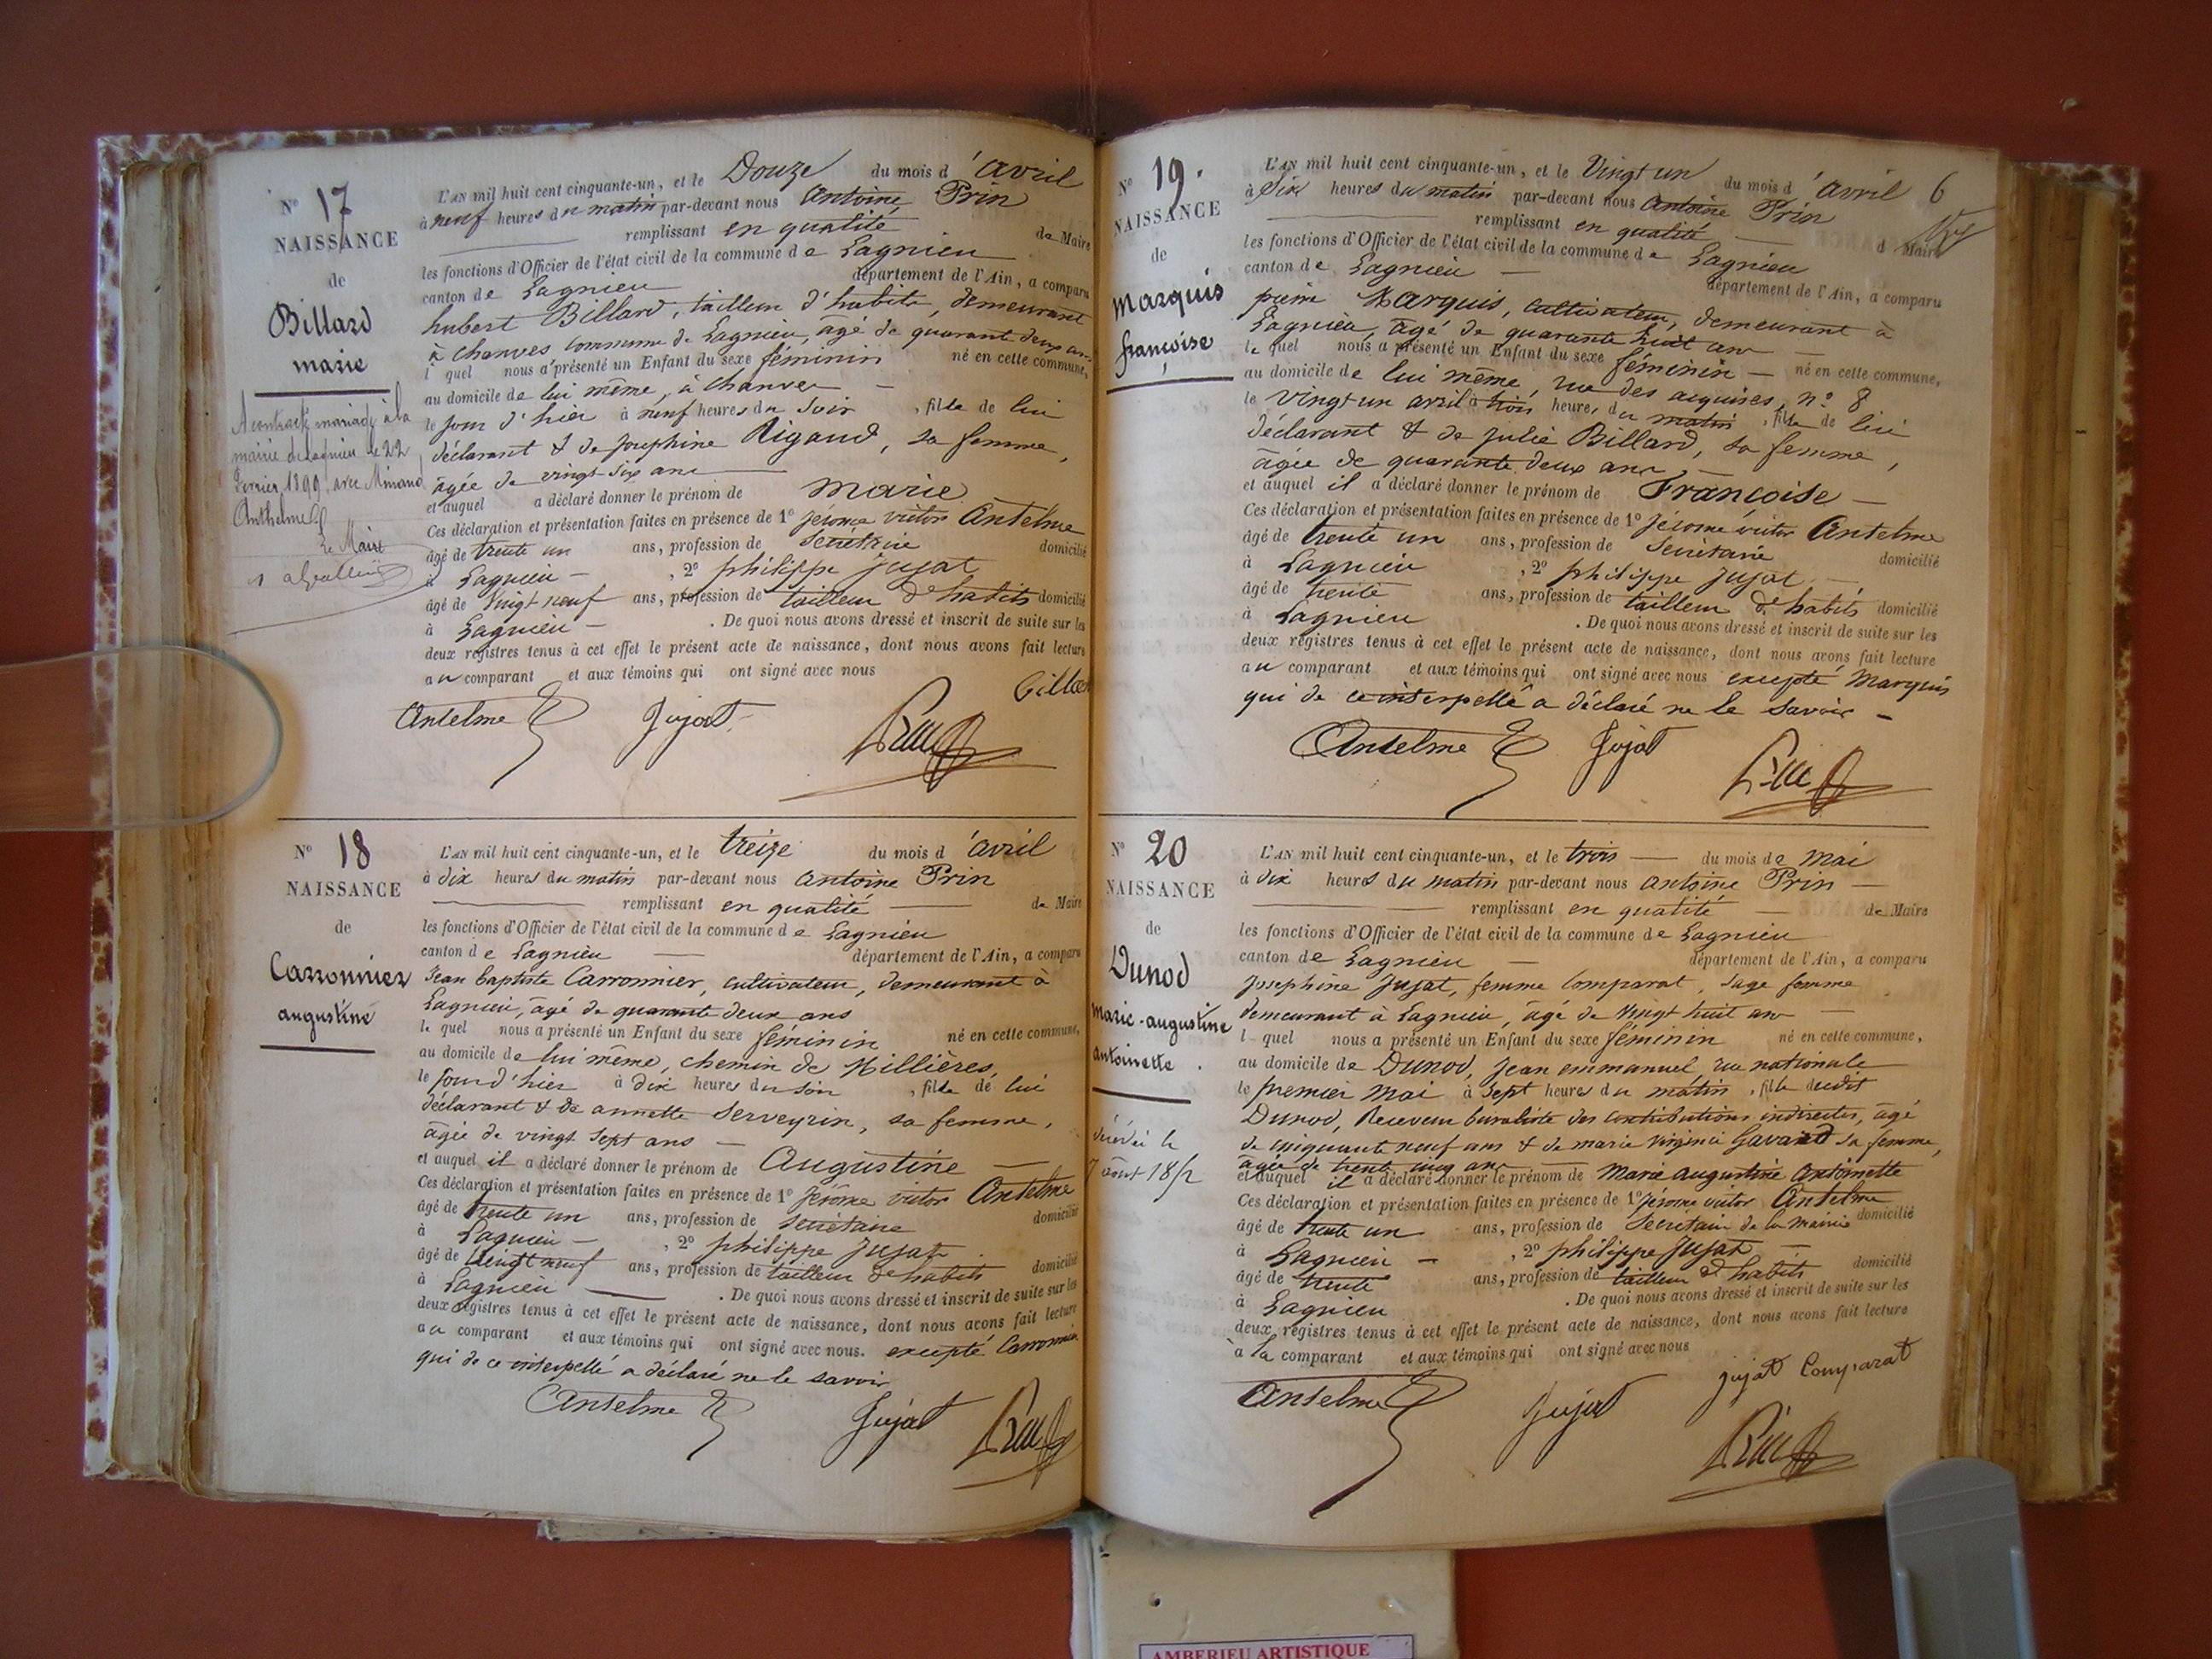 N° 17
NAISSANCE
de
Billard
marie
A contracté mariage à la
mairie de Lagnieu le 22
Février 1899, avec Minand
Anthelme
Le Maire
L'AN mil huit cent cinquante-un, et le Douze du mois d'avril
à neuf heures du matin par-devant nous Antoine Prin
remplissant en qualité de Maire
les fonctions d'Officier de l'état civil de la commune de Lagnieu
canton de Lagnieu département de l'Ain, a comparu
hubert Billard, tailleur d'habits, demeurant
à chanves commune de Lagnieu, âgé de quarante deux ans
l quel nous a présenté un Enfant du sexe féminin né en cette commune,
au domicile de lui même, à Chanves
le jour d'hier à neuf heures du soir, fille de lui
déclarant & de Josephine Rigaud, sa femme,
âgée de vingt-six ans
et auquel a déclaré donner le prénom de marie
Ces déclaration et présentation faites en présence de 1° Jérome victor Antelme
âgé de trente un ans, profession de Secrétaire domicilié
à Lagnieu, 2° philippe Jujat
âgé de Vingt neuf ans, profession de tailleur d'habits domicilié
à Lagnieu. De quoi nous avons dressé et inscrit de suite sur les
deux registres tenus à cet effet le présent acte de naissance, dont nous avons fait lecture
au comparant et aux témoins qui ont signé avec nous
Antelme Jujat Prin
N° 18
NAISSANCE
de
Carronnier
augustine
L'AN mil huit cent cinquante-un, et le treize du mois d'avril
à dix heures du matin par-devant nous Antoine Prin
remplissant en qualité de Maire
les fonctions d'Officier de l'état civil de la commune de Lagnieu
canton de Lagnieu département de l'Ain, a comparu
Jean baptiste Carronnier, cultivateur, demeurant à
Lagnieu, âgé de quarante deux ans
le quel nous a présenté un Enfant du sexe féminin né en cette commune,
au domicile de lui même, chemin de Millières,
le jour d'hier à dix heures du soir, fille de lui
déclarant & de annette Serveyrin, sa femme,
âgée de vingt sept ans
et auquel il a déclaré donner le prénom de Augustine
Ces déclaration et présentation faites en présence de 1° Jérôme victor Antelme
âgé de trente un ans, profession de Secrétaire domicilié
à Lagnieu, 2° philippe Jujat
âgé de vingt neuf ans, profession de tailleur d'habits domicilié
à Lagnieu. De quoi nous avons dressé et inscrit de suite sur les
deux registres tenus à cet effet le présent acte de naissance, dont nous avons fait lecture
au comparant et aux témoins qui ont signé avec nous. excepté Carronnier
qui de ce interpellé a déclaré ne le savoir
Antelme Jujat Prin
6
N° 19.
NAISSANCE
de
Marquis
françoise
L'AN mil huit cent cinquante-un, et le Vingt un du mois d'avril
à Six heures du matin par-devant nous Antoine Prin
remplissant en qualité d Maire
les fonctions d'Officier de l'état civil de la commune de Lagnieu
canton de Lagnieu département de l'Ain, a comparu
pierre Marquis, cultivateur, demeurant à
Lagnieu, âgé de quarante huit ans
le quel nous a présenté un Enfant du sexe féminin né en cette commune,
au domicile de lui même, rue des acquises, n° 8
le Vingt un avril à trois heures du matin, fille de lui
déclarant & de Julie Billard, sa femme,
âgée de quarante deux ans,
et auquel il a déclaré donner le prénom de Françoise
Ces déclaration et présentation faites en présence de 1° Jérome victor Antelme
âgé de trente un ans, profession de Secrétaire domicilié
à Lagnieu, 2° philippe Jujat
âgé de trente ans, profession de tailleur d'habits domicilié
à Lagnieu. De quoi nous avons dressé et inscrit de suite sur les
deux registres tenus à cet effet le présent acte de naissance, dont nous avons fait lecture
au comparant et aux témoins qui ont signé avec nous excepté Marquis
qui de ce interpellé a déclaré ne le savoir
Antelme Jujat Prin
N° 20
NAISSANCE
de
Dunod
marie-augustine
antoinette
L'AN mil huit cent cinquante-un, et le trois du mois de mai
à dix heures du matin par-devant nous antoine Prin
remplissant en qualité de Maire
les fonctions d'Officier de l'état civil de la commune de Lagnieu
canton de Lagnieu département de l'Ain, a comparu
Josephine Jujat, femme Comparat, sage femme
demeurant à Lagnieu, âgé de Vingt huit ans
l quel nous a présenté un Enfant du sexe féminin né en cette commune,
au domicile de Dunod, Jean emmanuel rue nationale
le premier mai à Sept heures du matin, fille dudit
Dunod, Receveur buraliste des contributions indirectes, âgé
de cinquante neuf ans & de marie Virginie Gavand sa femme,
âgée de trente cinq ans
et auquel il a déclaré donner le prénom de Marie augustine Antoinette
Ces déclaration et présentation faites en présence de 1° Jérome victor Antelme
âgé de trente un ans, profession de Secrétaire de la mairie domicilié
à Lagnieu, 2° philippe Jujat
âgé de trente ans, profession de tailleur d'habits domicilié
à Lagnieu. De quoi nous avons dressé et inscrit de suite sur les
deux registres tenus à cet effet le présent acte de naissance, dont nous avons fait lecture
à la comparant et aux témoins qui ont signé avec nous
jujat Comparat
Antelme Jujat Prin
AMBERIEU ARTISTIQUE